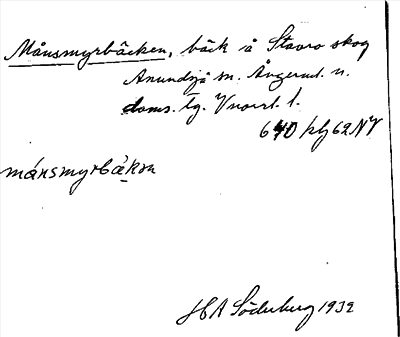 Månsmyrbäcken, bäck å Stavro skog
Anundsjö sn. Ångerml. n.
doms. tg. Vnorrl. l.
640 hbj 62 NV
månsmyrbäkɷn
H A Söderberg 1932